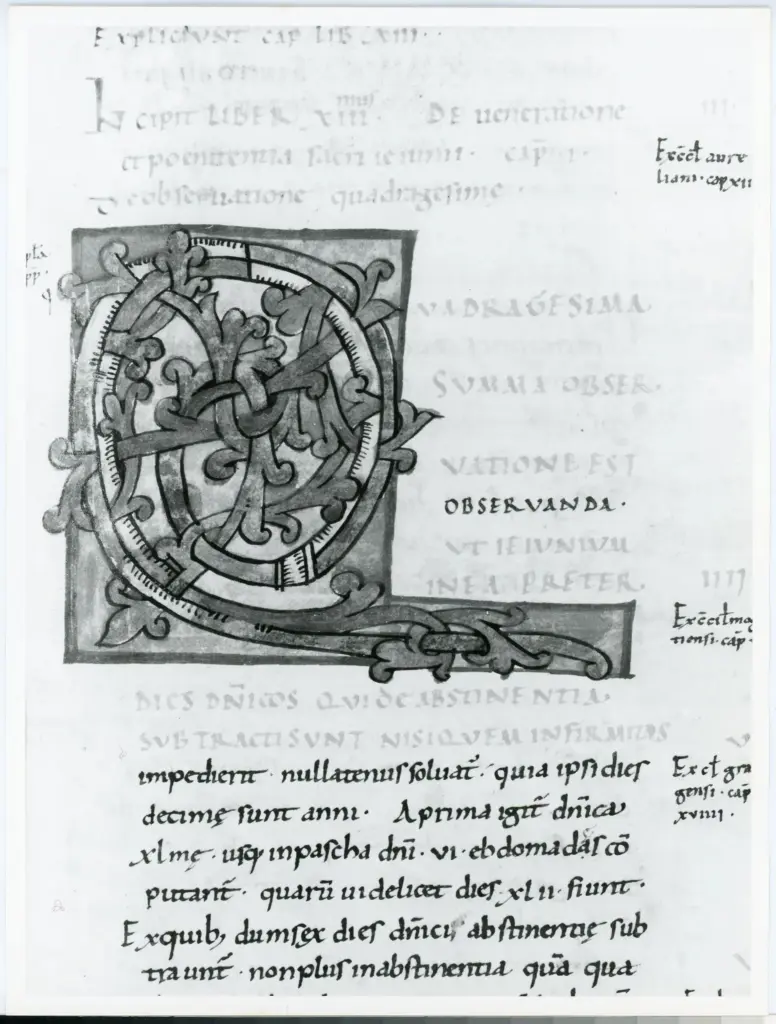 EXPLICIUNT CAP LIB XIII.
INCIPIT LIBER XIIIImus. DE ueneratione
et poenitentia sacri ieiunii. cap̄ i.
De obseruatione quadragesime.
Exc̄ct aure
liani. cap xii
QVADRAGESIMA
SVMMA OBSER
VATIONE EST
OBSERVANDA.
VT IEIVNIVM
IN EA PRETER.
IIII
DIES DN̄ICOS QVI DE ABSTINENTIA
SVBTRACTI SVNT NISI QVEM INFIRMITAS
impedierit nullatenus soluat̄. quia ipsi dies
decimę sunt anni. A prima igit̄ dn̄ica
xlmę. usq; in pascha dn̄i. vi. ebdomadas cō
putant̄. quarū uidelicet dies xlii fiunt.
Ex quib; dum sex dies dn̄ici abstinentię sub
traunt̄. non plus in abstinentia quā qua
Ex ct̄ gra
gensi. cap̄
xviiii.